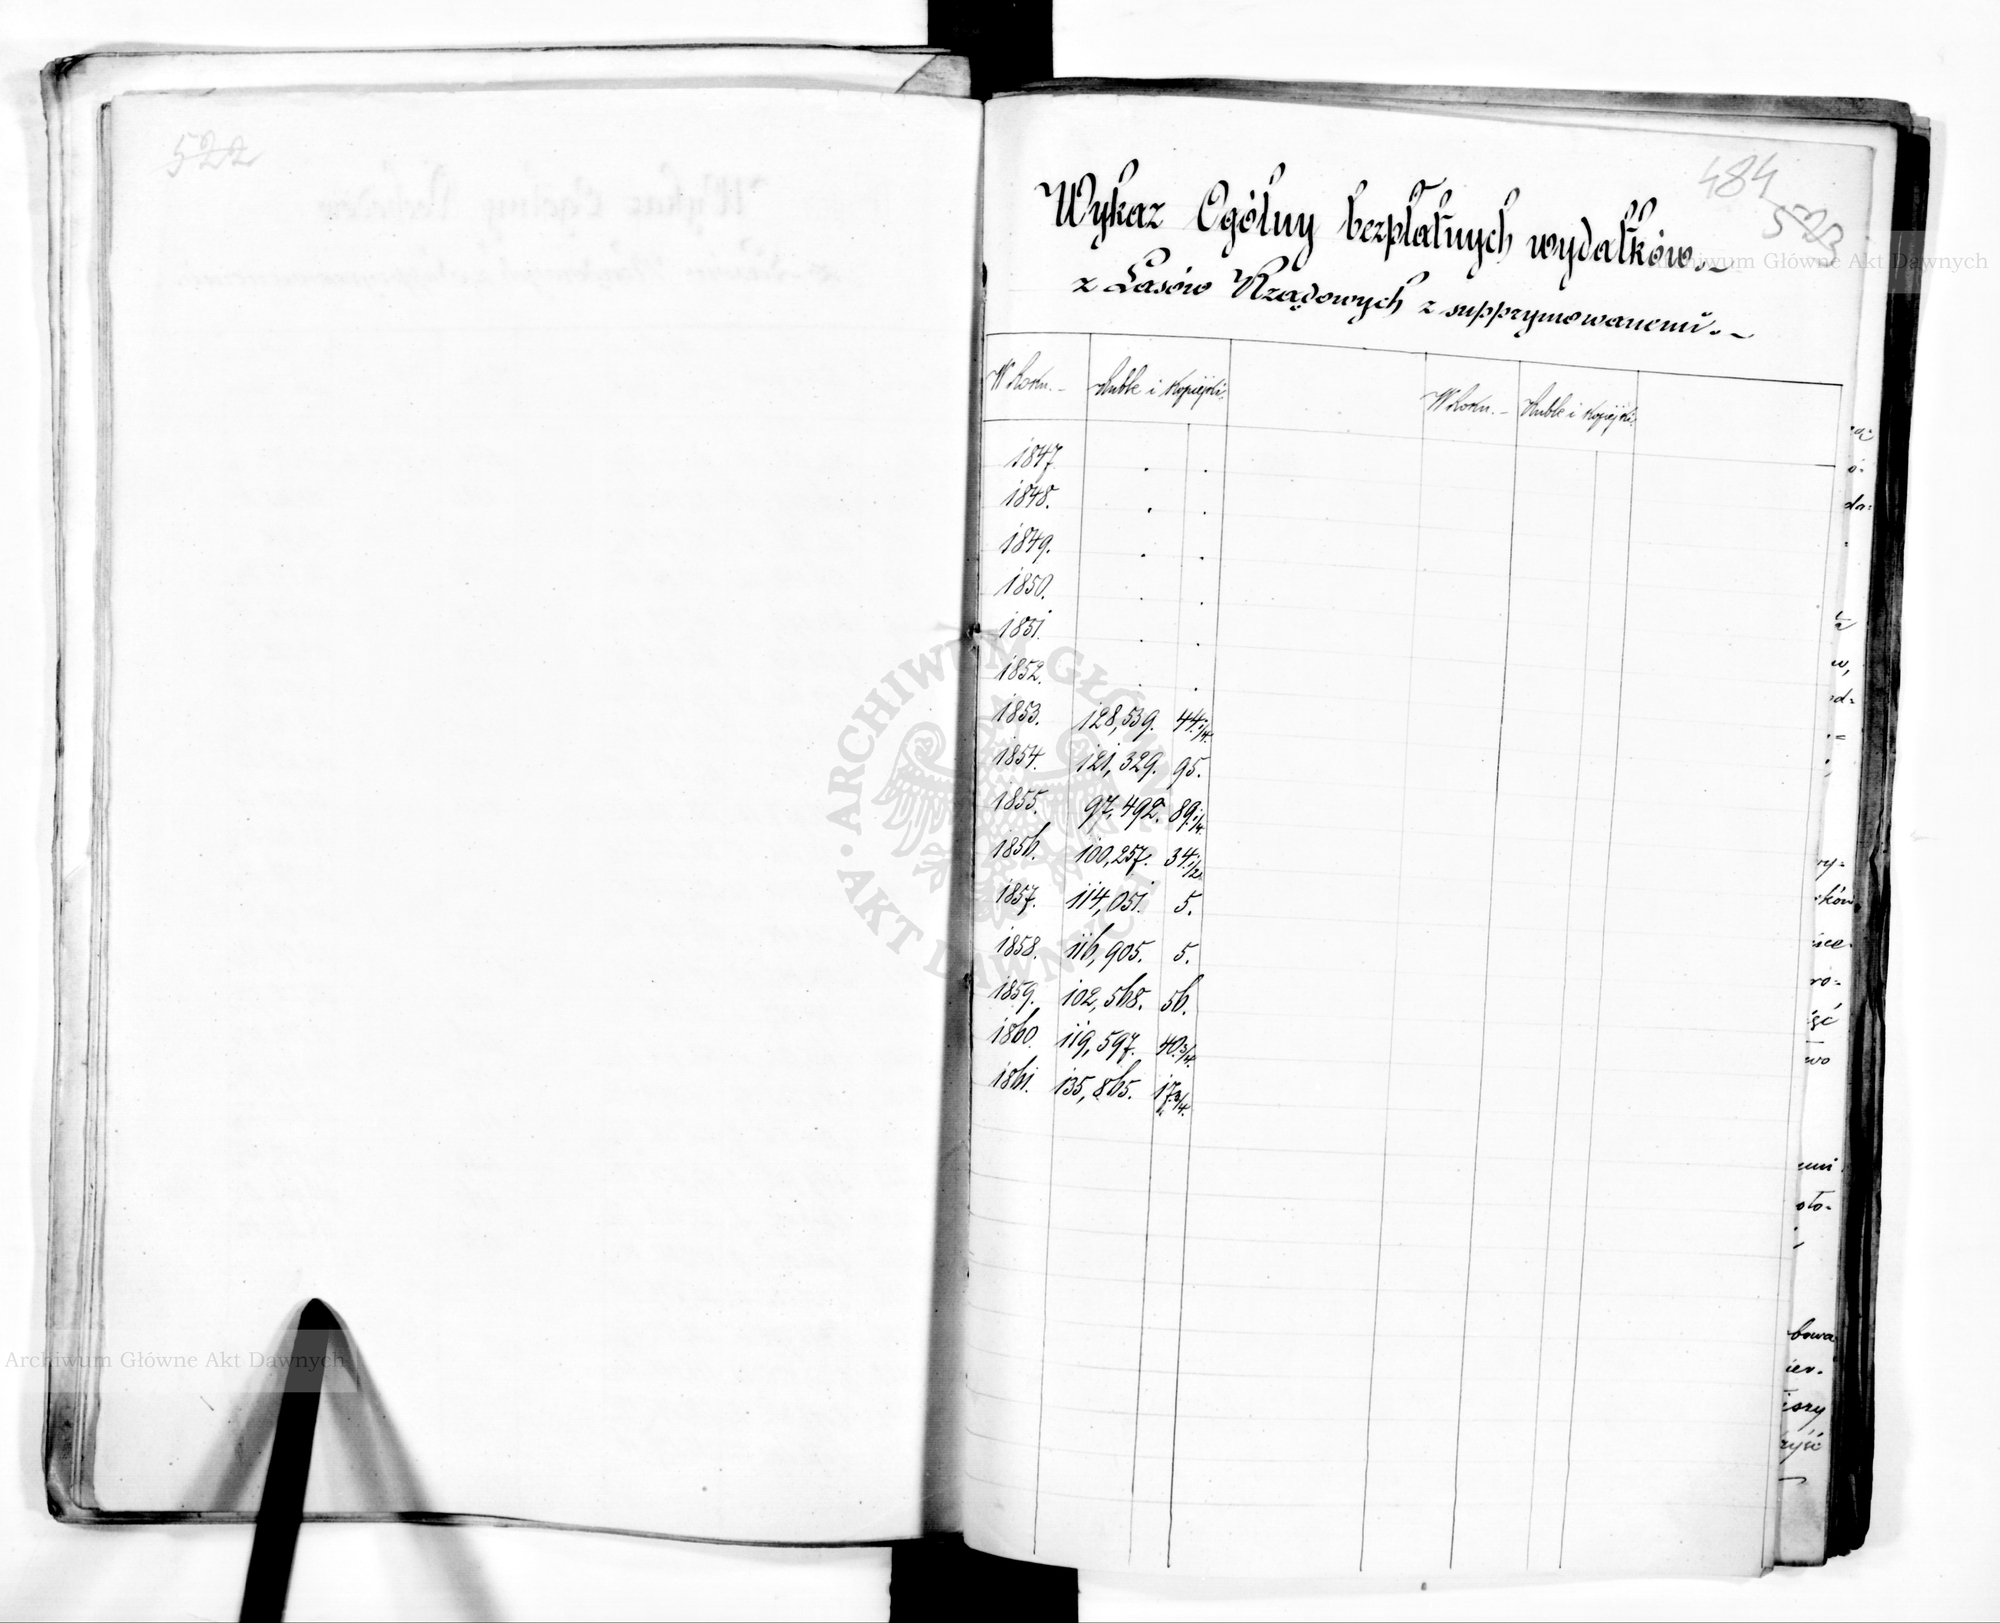 522
484
523
Wykaz Ogólny bezpłatnych wydatków. -
z Lasów Rządowych z supprymowanemi. -
W Roku. - Ruble i Kopiejki. W Roku. - Ruble i Kopiejki.
1847. . .
1848. . .
1849. . .
1850. . .
1851. . .
1852. . .
1853. 128,539. 44.1/4.
1854. 121,329. 95.
1855. 97,492. 89.1/4.
1856. 100,257. 34.1/2.
1857. 114,051. 5.
1858. 116,905. 5.
1859. 102,568. 56.
1860. 119,597. 40.3/4.
1861. 135,865. 17.3/4.
Archiwum Główne Akt Dawnych
ARCHIWUM GŁÓWNE AKT DAWNYCH
Archiwum Główne Akt Dawnych